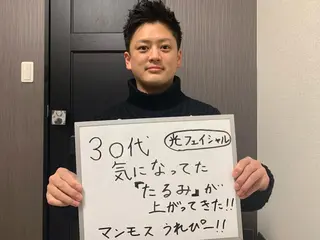 30代 光フェイシャル
気になってた
『たるみ』が
上がってきた!!
マンモス うれぴー!!